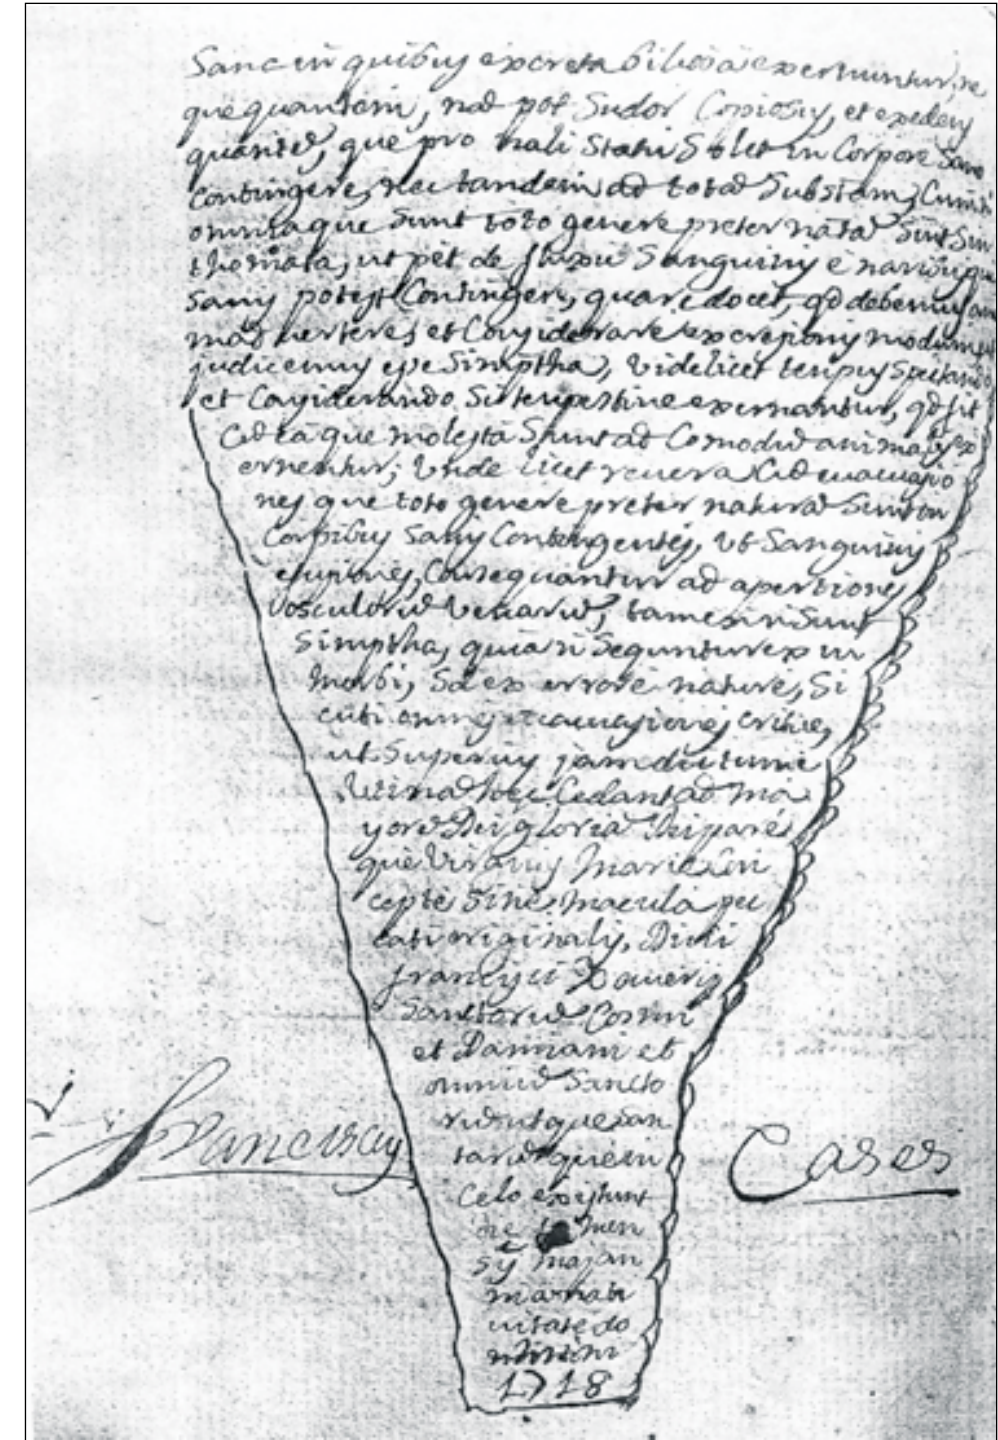 Sanc in quibus excreta biliosa excernuntur, ne
que quantem, nad pot Sudor Copiosus, et excedens
quantẽ, que pro nali Statu Solet in Corpore Sano
Contingere, nec tandem ad totã Substam, Cum
omnia que Sunt toto genere preter natã Sint Sin
thomata, ut pet de fluxu Sanguinis e naribus qui
Sanis potest Contingere, quare docet, qd debemus
mad vertere, et Considerare excresionis modum
judicemus esse Simptha, videlicet tempus Spectando
et Considerando Si tempestive excernantur, qd sit
Cũ ea que molesta Sunt ad Comodũ animalis ex
ernentur; Unde licet revera Cũ evacuasio
nes que toto genere preter naturã Sunt in
Corpibus Sanis Contingentes, ut Sanguinis
erupiones, Consequantur ad apertiones
vosculorũ Venarũ, tamen ñ Sunt
Simptha, quia ñ Sequntur ex vi
Morbi, Sd ex errore nature, Si
cuti omnes evacuasiones critice,
ut Superius jam dictum e
Utinã hec Cedant ad ma
yorẽ Dei gloriã Deipare
que Virginis Marie Con
cepte Sine macula pec
cati originalis, Divi
francisci Xaverii
Sanctorũ Cosmi
et Damiani et
omniũ Sancto
rũ utque San
tarũ que in
Celo existunt
die men
sis
nati
vitate do
mini
1718
Franciscus Cases